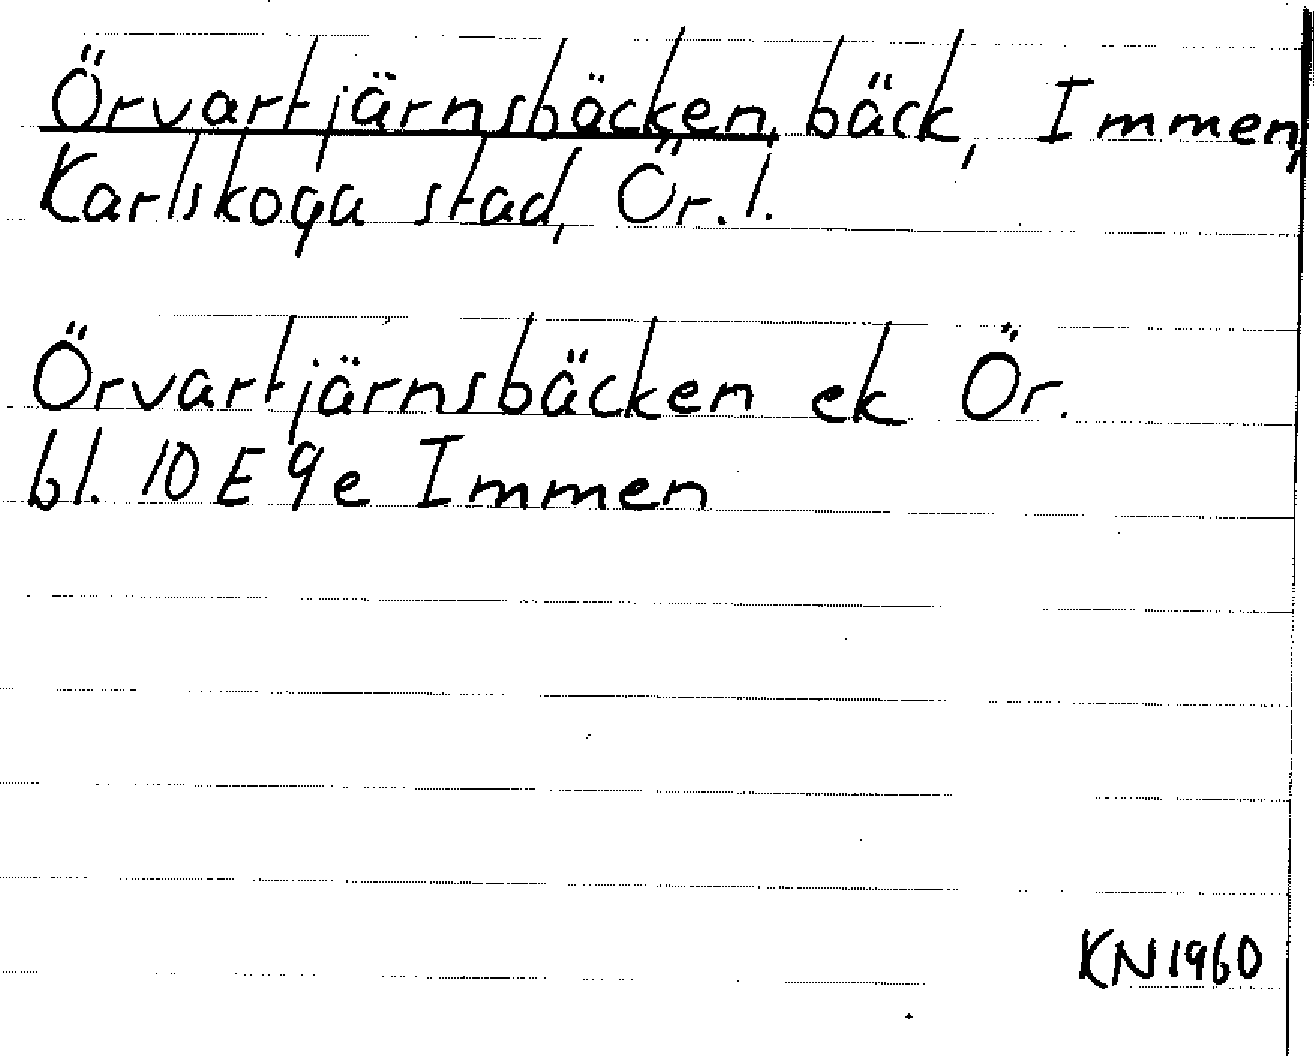 Örvartjärnsbäcken, bäck, Immen,
Karlskoga stad, Ör. l.
Örvartjärnsbäcken ek Ör.
bl. 10 E 9e Immen
KN 1960